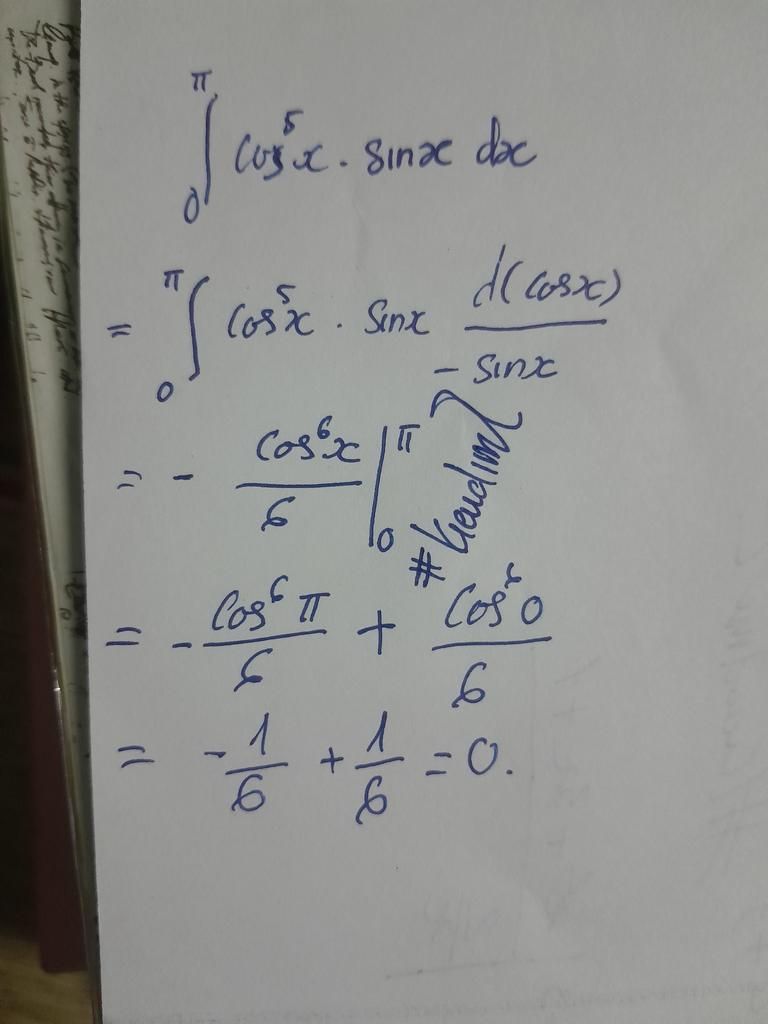 ∫₀^π cos⁵x · sinx dx
= ∫₀^π cos⁵x · sinx d(cosx)/(-sinx)
= - cos⁶x/6 |₀^π
= - cos⁶π/6 + cos⁶0/6
= -1/6 + 1/6 = 0.